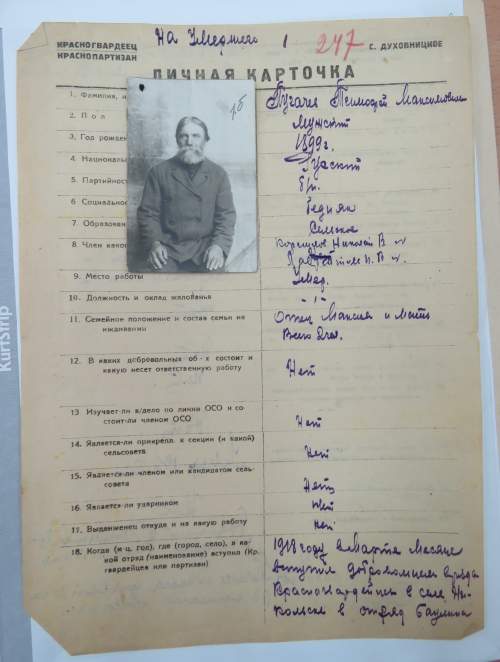 На Умершего 1 247
КРАСНОГВАРДЕЕЦ
КРАСНОПАРТИЗАН
С. ДУХОВНИЦКОЕ
ЛИЧНАЯ КАРТОЧКА
1. Фамилия, и
Пугачев Тимофей Максимович
2. Пол
Мужской
3. Год рожден
1899 г.
4. Национальн
Русский
5. Партийност
б/п.
6. Социальное
Бедняк
7. Образован
Сельское
8. Член какого
Николай В
9. Место работы
Умер.
10. Должность и оклад жалованья
- " -
11. Семейное положение и состав семьи на иждивении
Отец Максим и Мать
Всего 2 чел.
12. В каких добровольных об-х состоит и
какую несет ответственную работу
Нет
13 Изучает-ли в/дело по линии ОСО и со-
стоит-ли членом ОСО
Нет
14. Является-ли прикрепл. к секции (и какой)
сельсовета
Нет
15. Является-ли членом или кандидатом сель-
совета
Нет
16. Является-ли ударником
Нет
17. Выдвиженец откуда и на какую работу
Нет
18. Когда (м-ц, год), где (город, село), в ка-
кой отряд (наименование) вступил (Кр.
гвардейцем или партизан)
1918 году в Марте Месяце
вступил добровольцем в ряды
Красногвардейцев в селе Ни-
кольском в отряд Баулина
KurtStrip